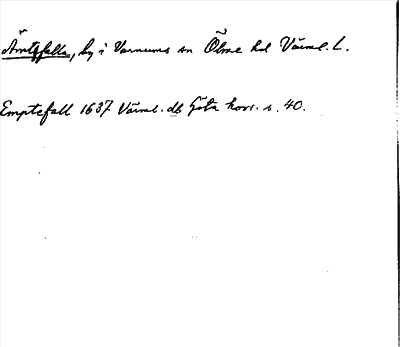 Ämtsfalla, by i Varnums sn Ölme hd Värml. L.
Emptefall 1637 Värml. db Göta hovr. s. 40.